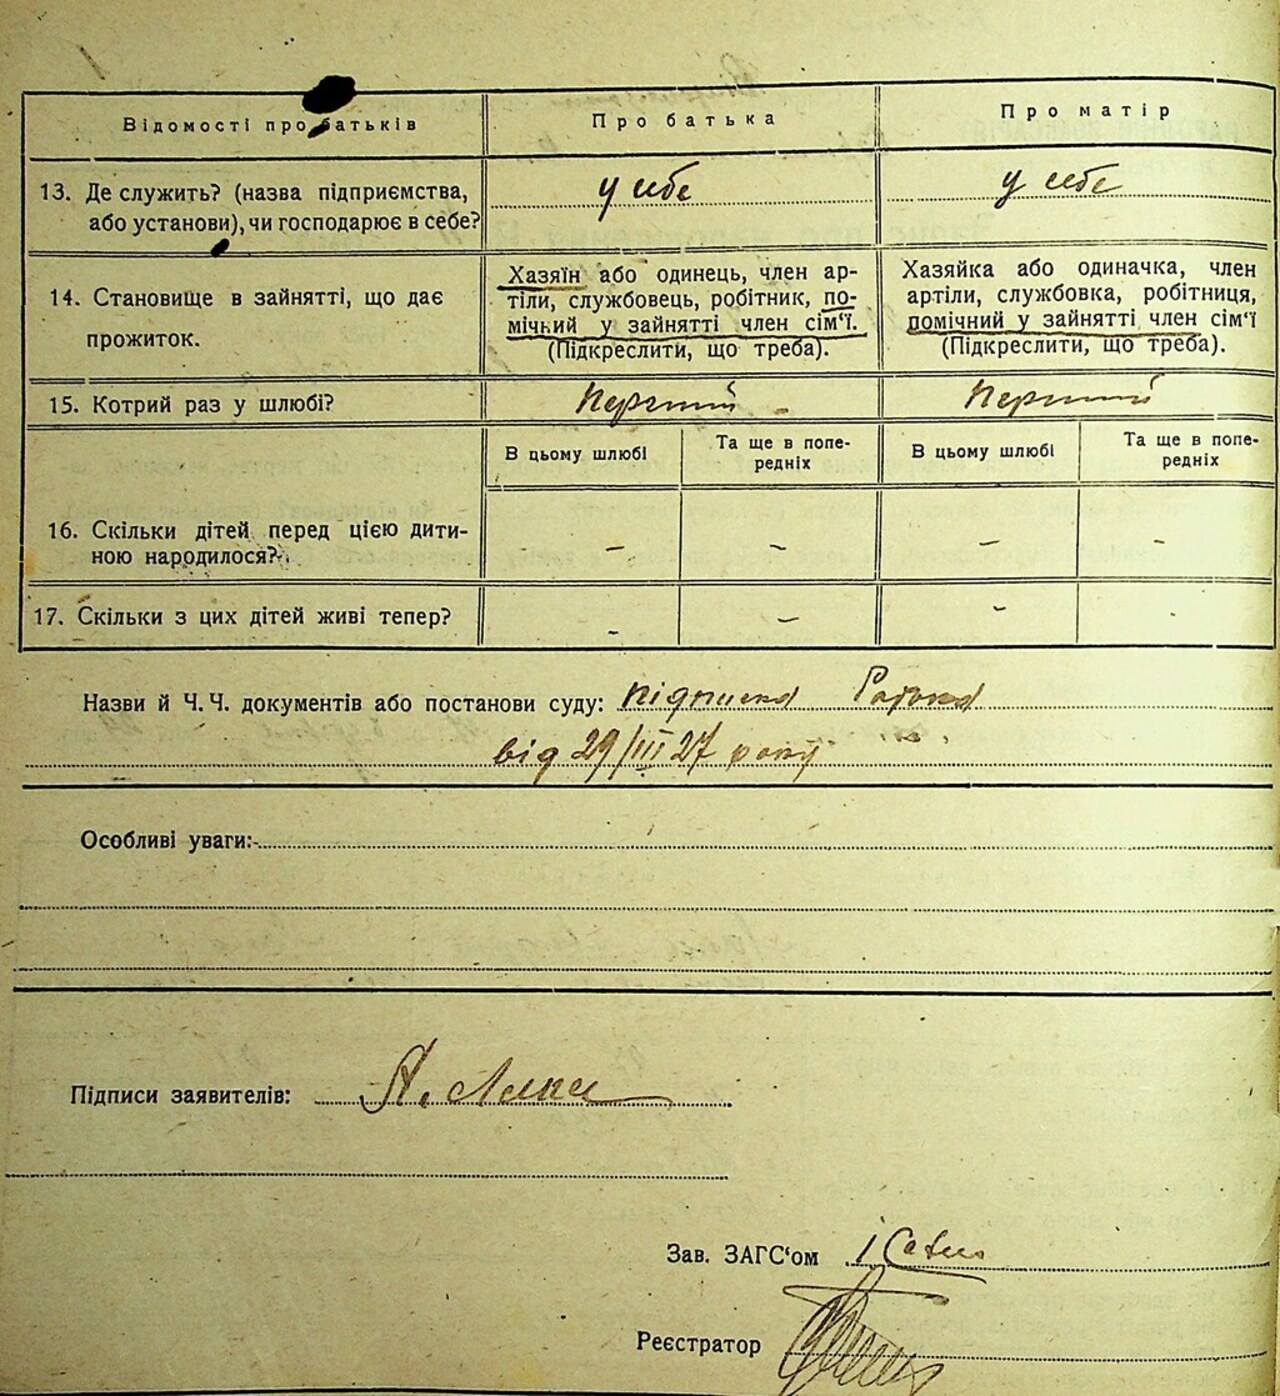 Відомості про батьків
Про батька
Про матір
13. Де служить? (назва підприємства,
або установи), чи господарює в себе?
у себе
у себе
14. Становище в зайнятті, що дає
прожиток.
Хазяїн або одинець, член ар-
тіли, службовець, робітник, по-
мічний у зайнятті член сім'ї.
(Підкреслити, що треба).
Хазяйка або одиначка, член
артіли, службовка, робітниця,
помічний у зайнятті член сім'ї
(Підкреслити, що треба).
15. Котрий раз у шлюбі?
Перший
Перший
В цьому шлюбі
Та ще в попе-
редніх
В цьому шлюбі
Та ще в попе-
редніх
16. Скільки дітей перед цією дити-
ною народилося?
– – – –
17. Скільки з цих дітей живі тепер?
– – – -
Назви й Ч. Ч. документів або постанови суду: підписка
від 29/III 27 року
Особливі уваги:
Підписи заявителів:
Зав. ЗАГС'ом
Реєстратор